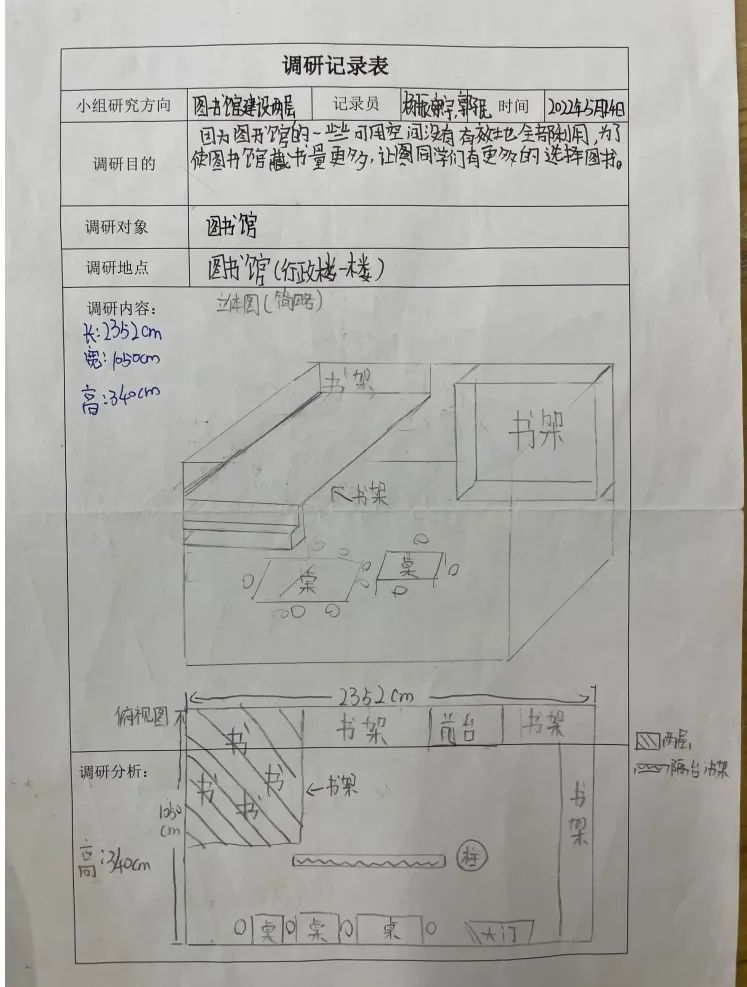 调研记录表
小组研究方向 图书馆建设两层 记录员 时间 2022年5月24日
调研目的
因为图书馆的一些可用空间没有有效地全部利用,为了
使图书馆藏书量更多,让同学们有更多的选择图书。
调研对象 图书馆
调研地点 图书馆(行政楼一楼)
调研内容: 立体图(简略)
长:2352cm
宽:1050cm
高:340cm
书架
书架
书架
桌
桌
2352cm
俯视图
书 书架 前台 书架
两层
隔台书架
调研分析:
书 书 书
书架
书架
1050
cm
高:340cm
柱
桌 桌 桌 大门